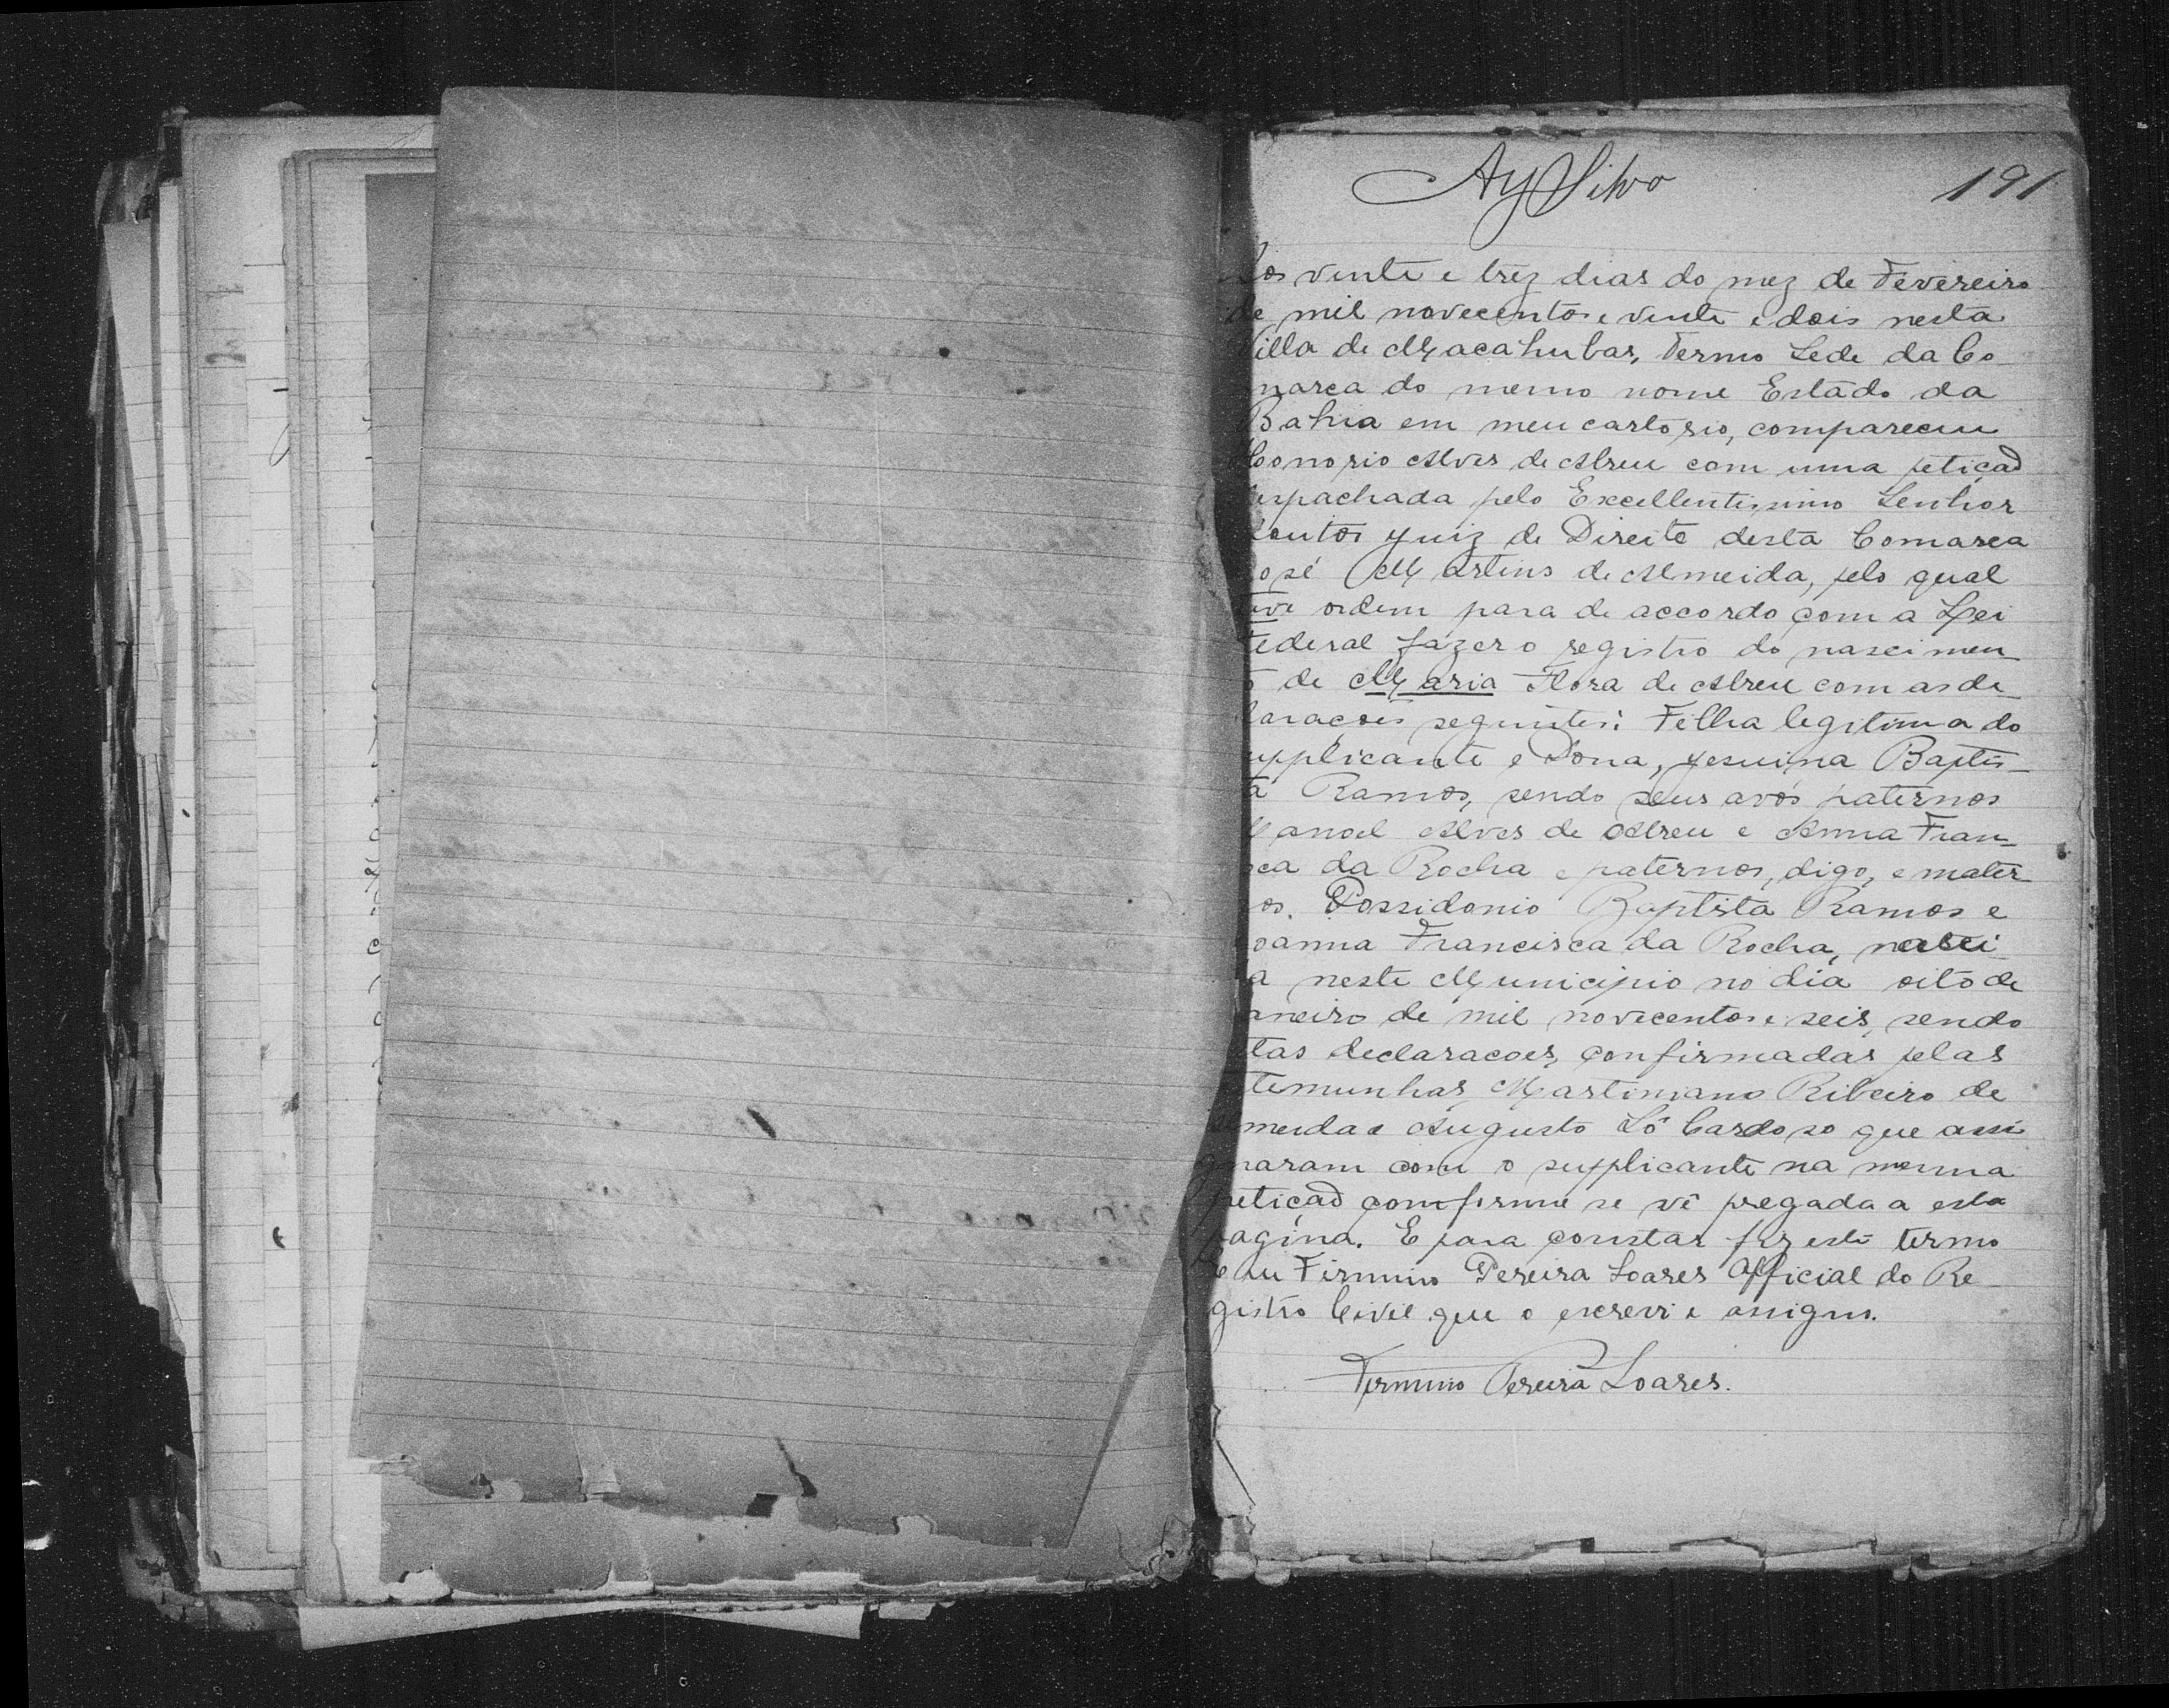 AySilva
191
Aos vinte e trez dias do mez de Fevereiro
de mil novecentos e vinte e dois nesta
Villa de Macahubas, Termo Sede da Co
marca do mesmo nome Estado da
Bahia em meu cartorio, compareceu
Honorio Alves de Abreu com uma petição
espachada pelo Excellentissimo Senhor
Doutor Juiz de Direito desta Comarca
osé Martins de Almeida, pelo qual
tive ordem para de accordo com a Lei
Federal fazer o registro do nascimen
to de Maria Flora de Abreu com as de
larações seguintes: Filha legitima do
upplicante e Dona, Jesuina Baptis-
ta Ramos, sendo seus avós paternos
Manoel Alves de Abreu e Anna Fran-
ca da Rocha e paternos, digo, e mater
os. Possidonio Baptista Ramos e
oanna Francisca da Rocha, nasci
a neste Municipio no dia oito de
aneiro de mil novecentos e seis, sendo
tas declaracoes, confirmadas pelas
temunhas, Martiniano Ribeiro de
lmeida e Augusto Ló Cardoso que assi
gnaram com o supplicante na mesma
petição comforme se vê pregada a esta
pagina. E para constar fiz este termo
E eu Firmino Pereira Soares Official do Re
gistro Civil que o escrevi e assigno.
Firmino Pereira Soares.